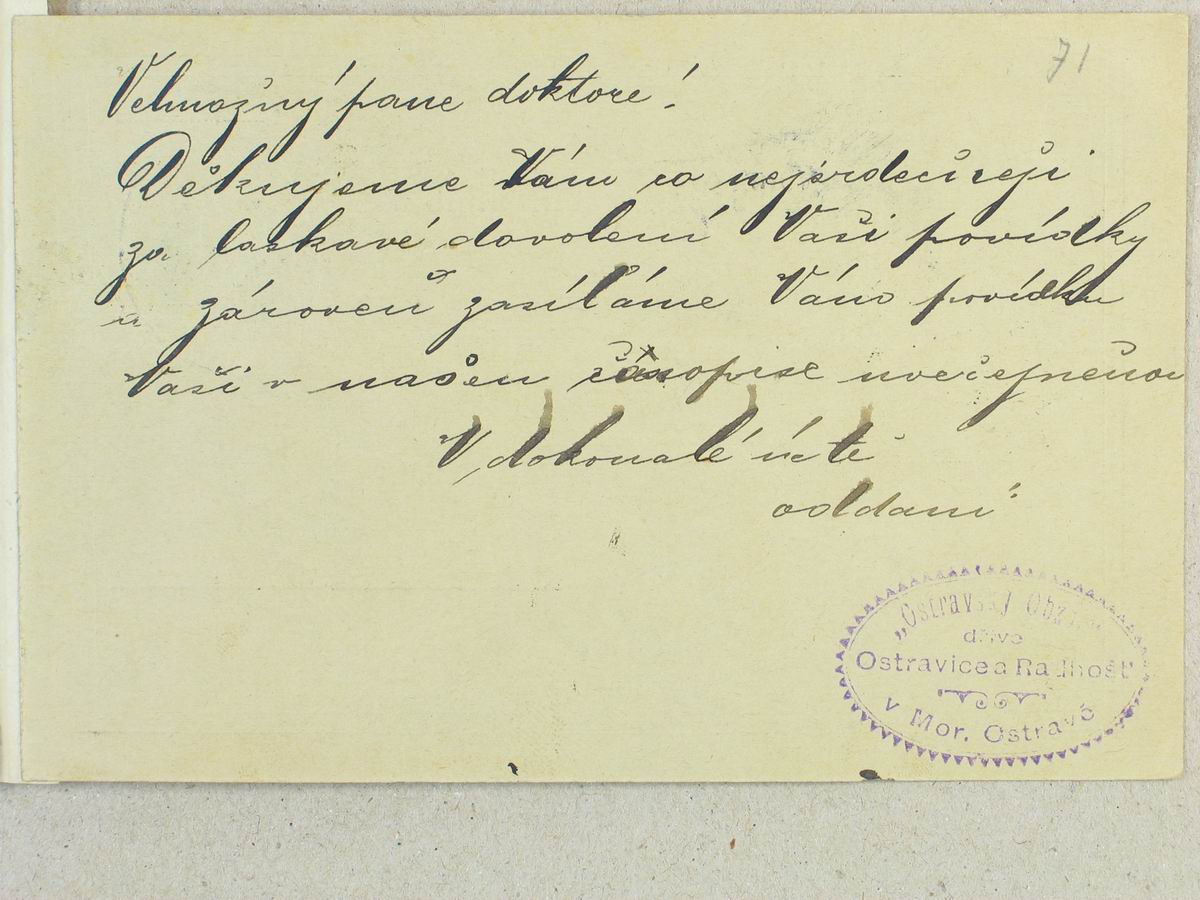 71
Velmožný pane doktore!
Děkujeme Vám co nejsrdečněji
za laskavé dovolení Vaší povídky
a zároveň zasíláme Vám povídku
Vaši v našem časopise uveřejněnou
V dokonalé úctě
oddaní:
„Ostravský Obzor"
dříve
Ostravice a Radhošť
v Mor. Ostravě